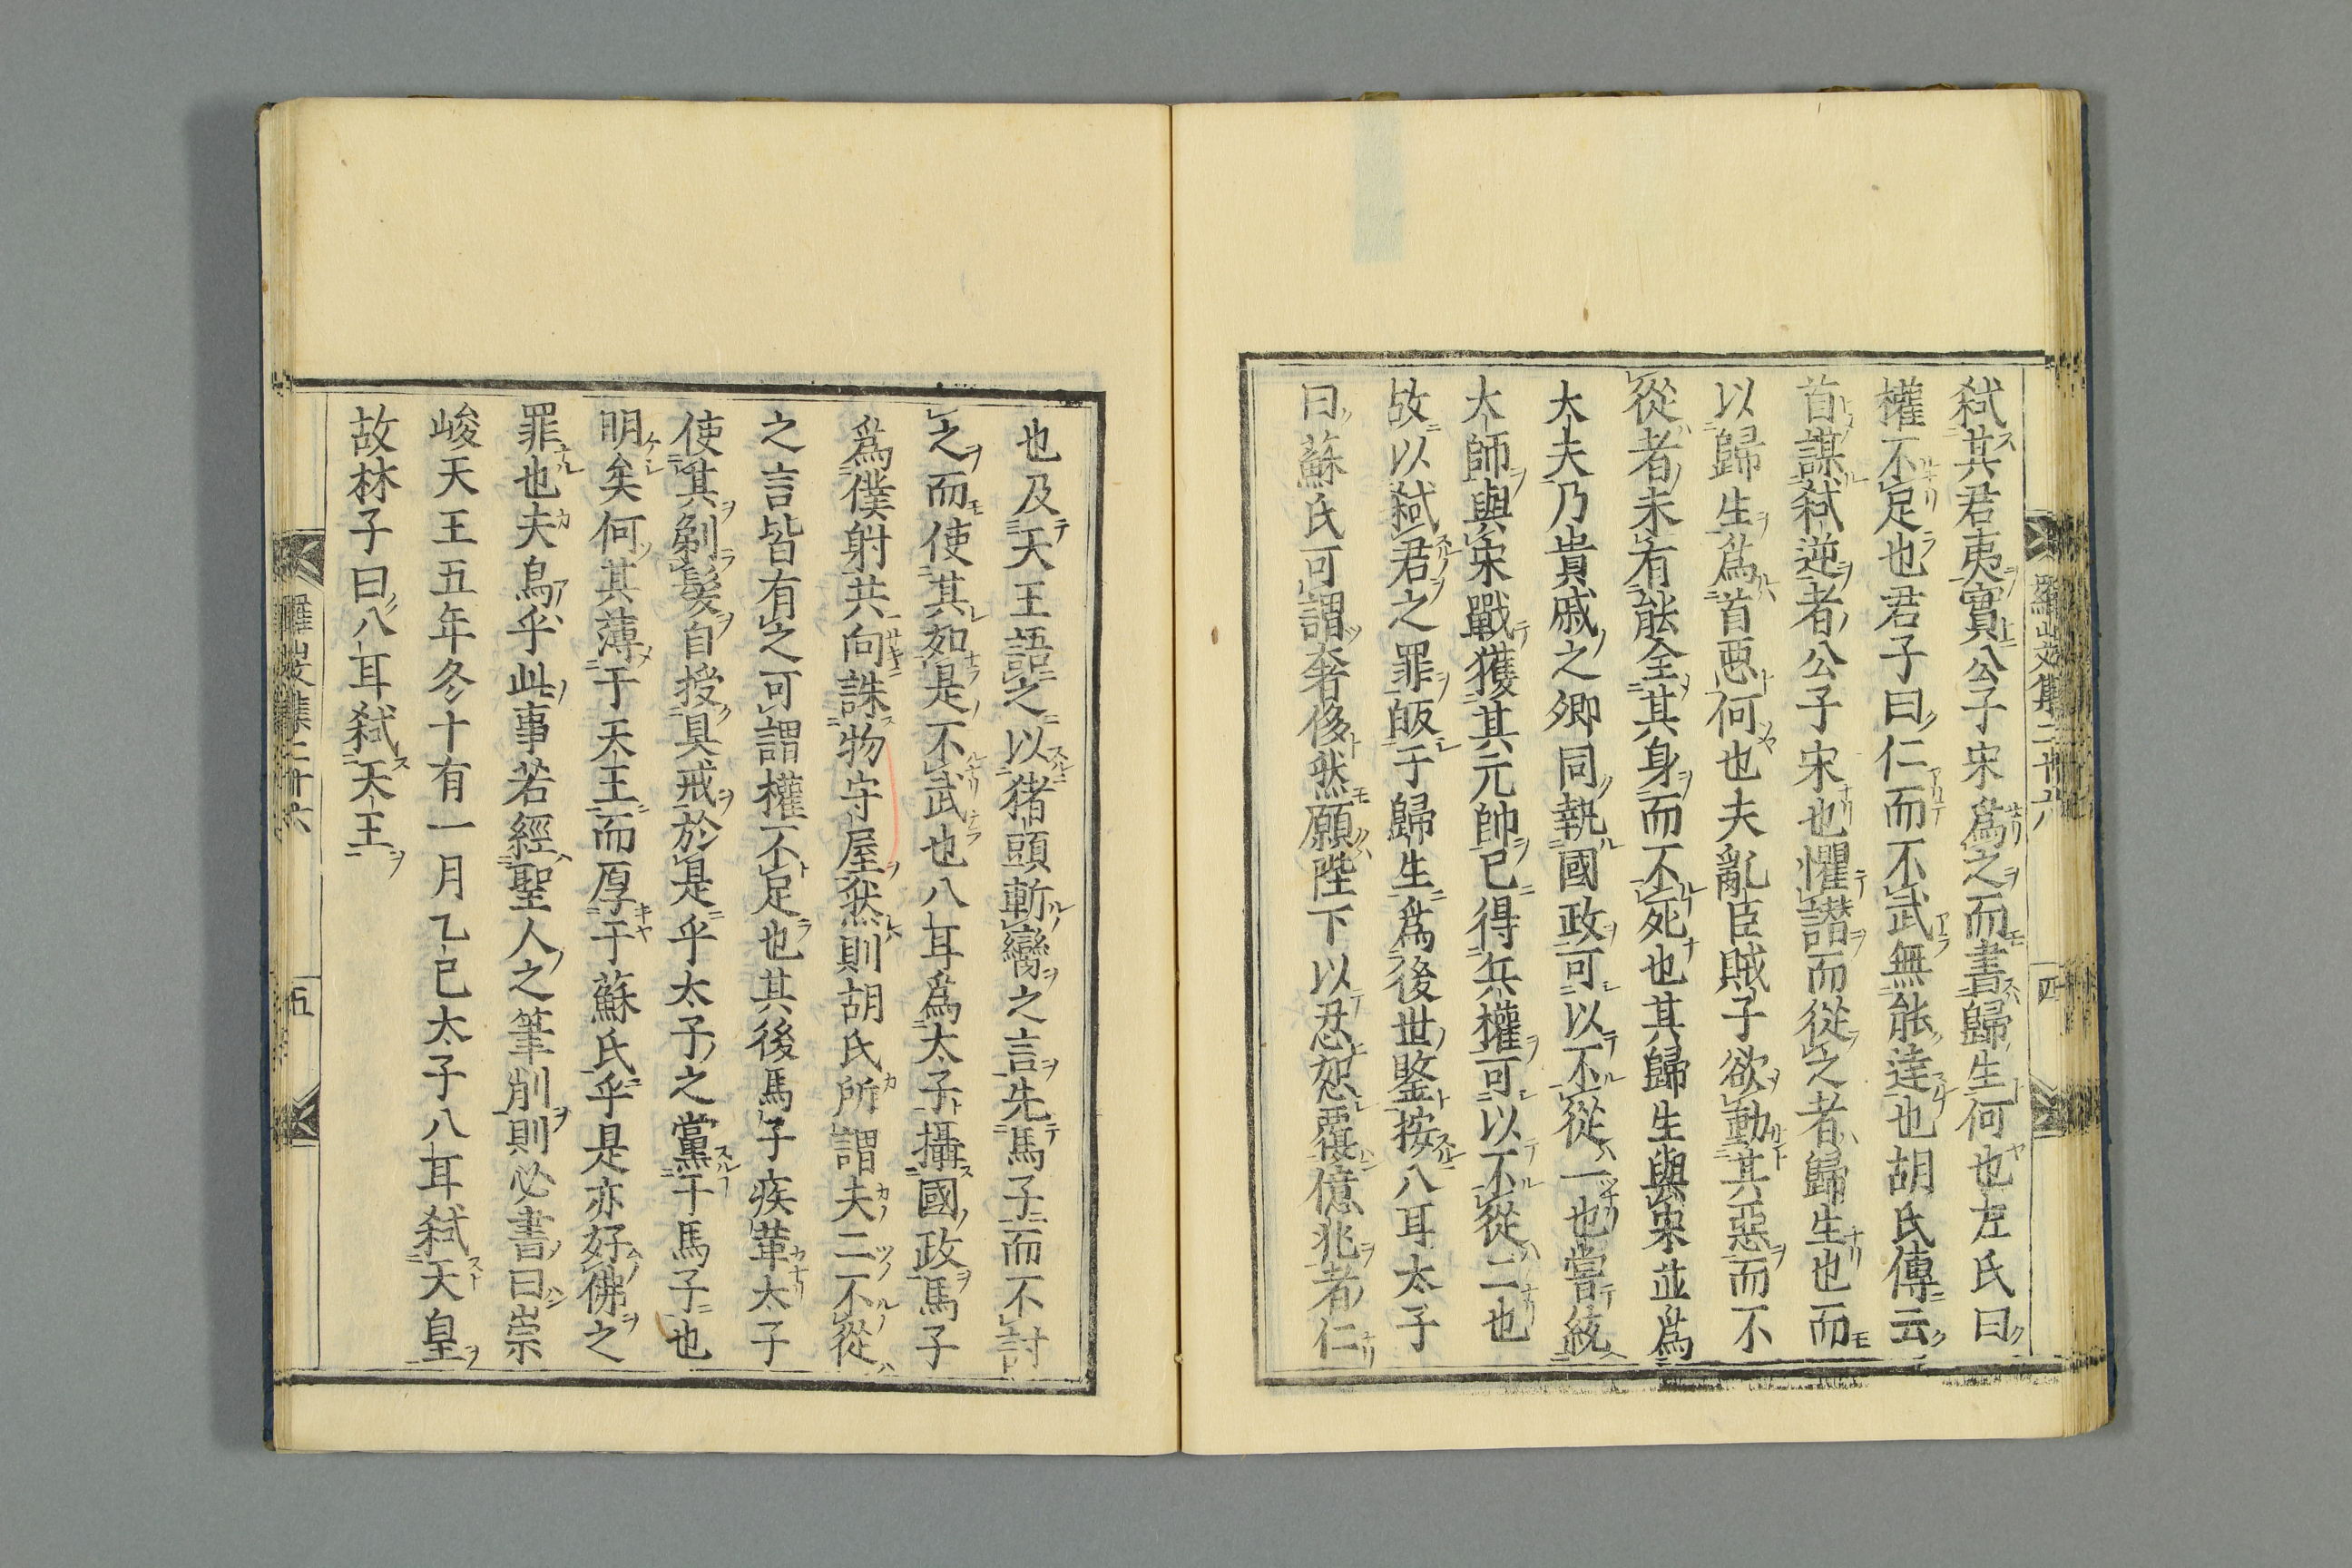 弑其君夷實公子宋爲之而書歸生何也左氏曰
權不足也君子曰仁而不武無能達也胡氏傳云
首謀弑逆者公子宋也懼譖而從之者歸生也而
以歸生爲首惡何也夫亂臣賊子欲動其惡而不
從者未有能全其身而不死也其歸生與宋並爲
大夫乃貴戚之卿同執國政可以不從一也嘗統
大師與宋戰獲其元帥已得兵權可以不從二也
故以弑君之罪皈于歸生爲後世鑒按八耳太子
曰蘇氏可謂奢侈然願陛下以忍恕覆億兆者仁
也及天王語之以猪頭斬讐之言先馬子而不討
之而使其如是不武也八耳爲太子攝國政馬子
爲僕射共向誅物守屋然則胡氏所謂夫二不從
之言皆有之可謂權不足也其後馬子疾革太子
使其剃髮自授具戒於是乎太子之黨于馬子也
明矣何其薄于天王而厚于蘇氏乎是亦好佛之
罪也夫烏乎此事若經聖人之筆削則必書曰崇
峻天王五年冬十有一月乙巳太子八耳弑天皇
故林子曰八耳弑天王
羅山文集二十六
四
羅山文集二十六
五